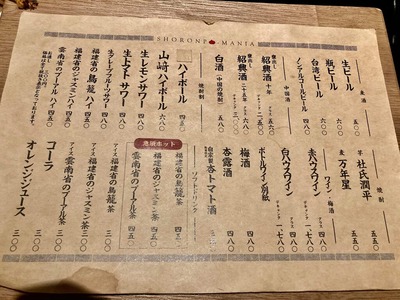 SHORONPO MANIA
麦酒
生ビール 五五〇
瓶ビール 六六〇
台湾ビール 六八〇
ノンアルコールビール 四八〇
中国酒
甕出し 紹興酒 十年
紹興酒
白酒(中国の焼酎) 五八〇
焼酎割
ハイボール 四五〇
山崎ハイボール 六八〇
生レモンサワー 四八〇
生トマトサワー
生グレープフルーツサワー
福建省のジャスミンハイ 四五〇
福建省の烏龍ハイ 四五〇
雲南省のプーアルハイ 四五〇
焼酎
杜氏潤平 五五〇
万年星 五五〇
ワイン・梅酒
赤ハウスワイン
グラス 四八〇
デキャンタ 一、七八〇
白ハウスワイン
グラス 四八〇
デキャンタ 一、七八〇
ボトルワイン別紙
梅酒 四八〇
杏露酒 四八〇
自家製杏トマト酒 五五〇
ソフトドリンク
急須ホット
福建省の烏龍茶 四五〇
福建省のジャスミン茶 四五〇
雲南省のプーアル茶 四五〇
アイス 福建省の烏龍茶 三〇〇
アイス 福建省のジャスミン茶 三〇〇
アイス 雲南省のプーアル茶 三〇〇
コーラ 三〇〇
オレンジジュース 三〇〇